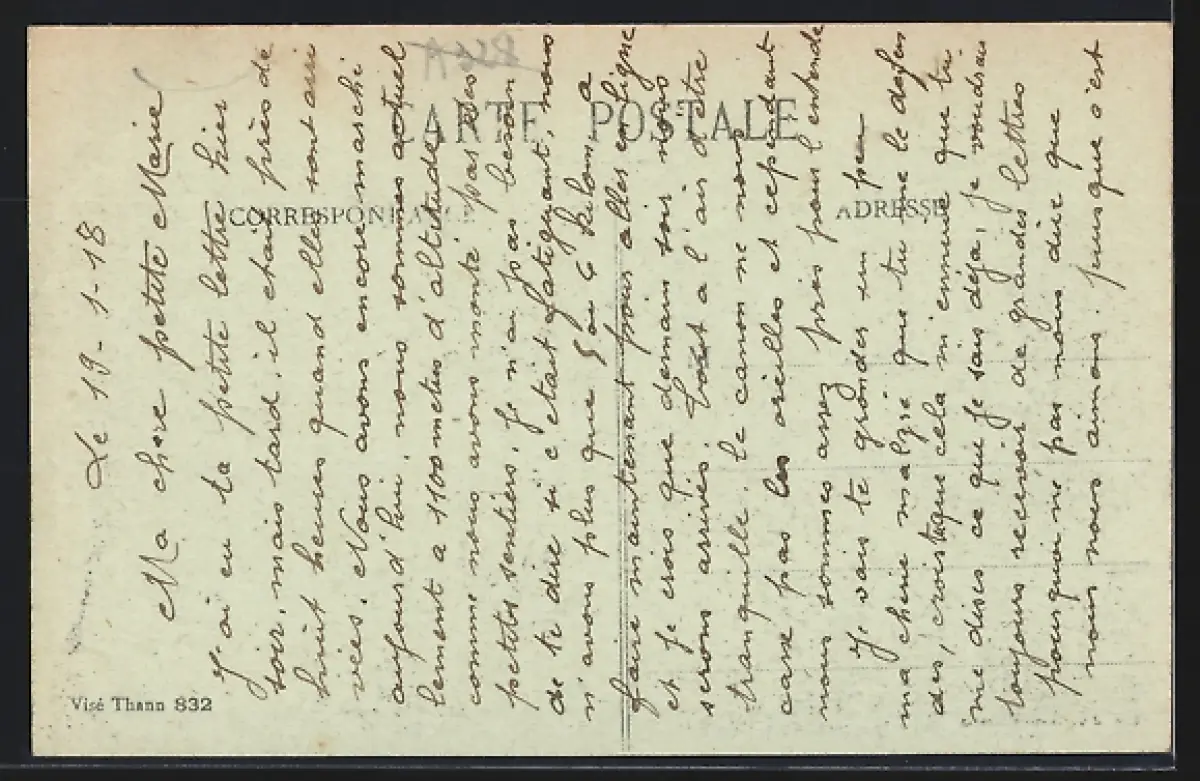 CARTE POSTALE
CORRESPONDANCE
ADRESSE
Visé Thann 832
Le 19-1-18
Ma chere petite Marie
J'ai eu ta petite lettre hier
soir, mais tard. il etait près de
huit heures quand elles sont arri
vées. Nous avons encore marché
aujourd'hui, nous sommes actuel
lement a 1100 metres d'altitude
comme nous avons monté par des
petits sentiers. Je n'ai pas besoin
de te dire si c'etait fatiguant, nous
n'avons plus que 5 ou 6 kilom a
faire maintenant pour aller en ligne
et je crois que demain soir nous
serons arrivés. Tout a l'air d'etre
tranquille. le canon ne nous
casse pas les oreilles et cependant
nous sommes assez près pour l'entendre
Je vais te gronder un peu
ma cherie malgré que tu me le defen
des, crois tu que cela m'ennuie que tu
me dises ce que je sais déja, je voudrais
toujours recevoir de grandes lettres
pourquoi ne pas nous dire que
nous nous aimons. puisque c'est